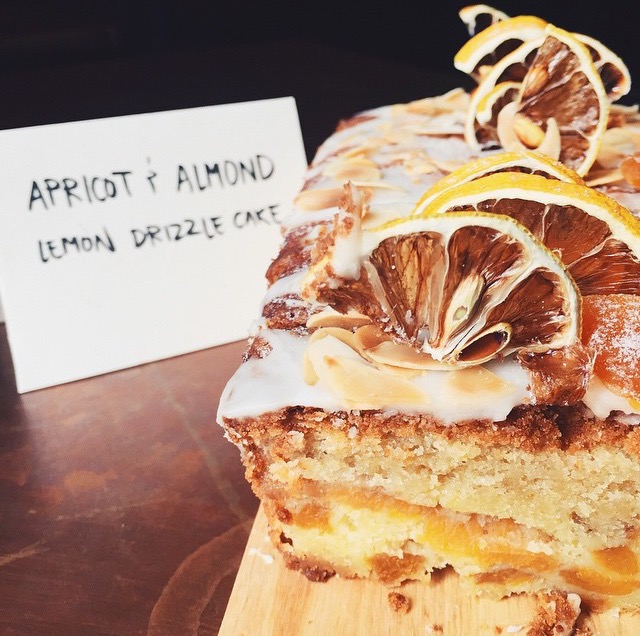 APRICOT & ALMOND
LEMON DRIZZLE CAKE